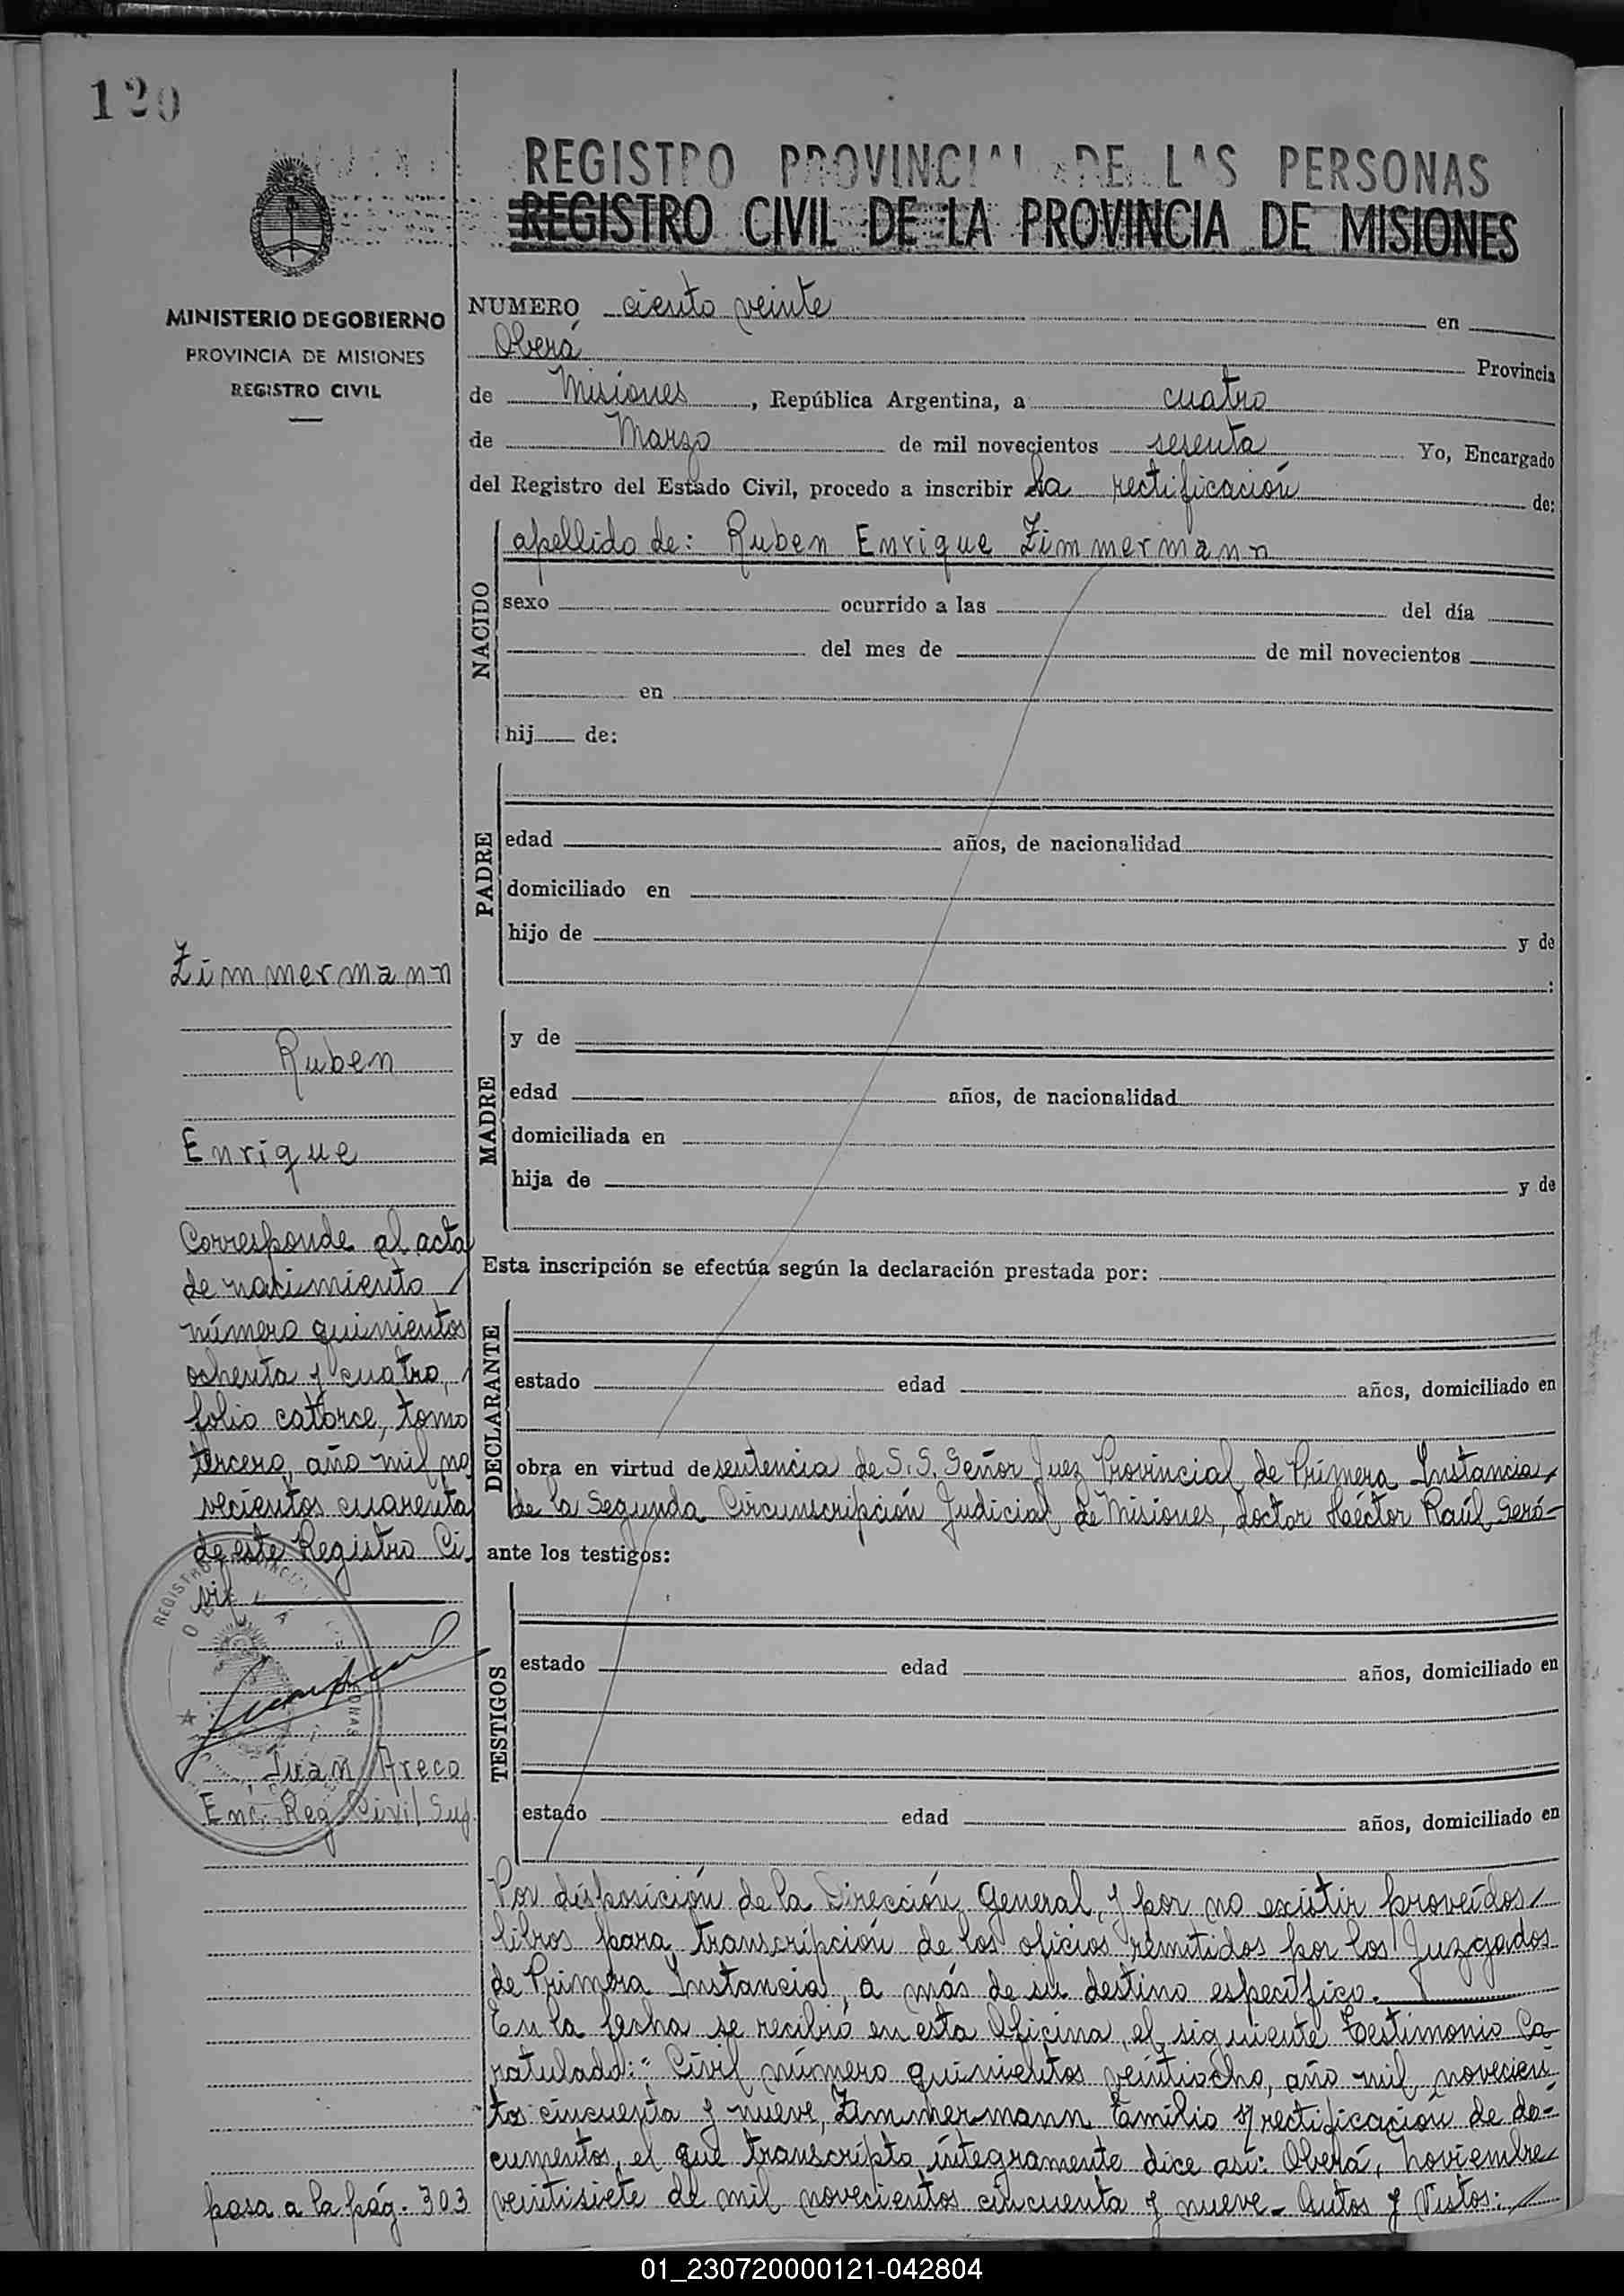 120
REGISTRO PROVINCIAL DE LAS PERSONAS
REGISTRO CIVIL DE LA PROVINCIA DE MISIONES
MINISTERIO DE GOBIERNO
PROVINCIA DE MISIONES
REGISTRO CIVIL
NUMERO ciento veinte en
Oberá Provincia
de Misiones, República Argentina, a cuatro
de Marzo de mil novecientos sesenta Yo, Encargado
del Registro del Estado Civil, procedo a inscribir la rectificación de:
NACIDO
apellido de: Ruben Enrique Zimmermann
sexo ocurrido a las del día
del mes de de mil novecientos
en
hij de:
PADRE
edad años, de nacionalidad
domiciliado en
hijo de y de
:
MADRE
y de
edad años, de nacionalidad
domiciliada en
hija de y de
Esta inscripción se efectúa según la declaración prestada por:
DECLARANTE
estado edad años, domiciliado en
obra en virtud de sentencia de S.S. Señor Juez Provincial de Primera Instancia,
de la Segunda Circunscripción Judicial de Misiones, doctor Haéctor Raúl Geró-
ante los testigos:
TESTIGOS
estado edad años, domiciliado en
estado edad años, domiciliado en
Por disposición de la Dirección General, y por no existir proveídos
libros para transcripción de los oficios remitidos por los Juzgados
de Primera Instancia, a más de su destino específico.
En la fecha se recibió en esta Oficina, el siguiente Testimonio Ca-
ratulado: "Civil número quinientos veintiocho, año mil novecien-
tos cincuenta y nueve, Zimmermann Emilio s/ rectificación de do-
cumentos, el que transcripto íntegramente dice así: Oberá, noviembre
veintisiete de mil novecientos cincuenta y nueve.- Autos y Vistos:
Zimmermann
Ruben
Enrique
Corresponde al acta
de nacimiento
número quinientos
ochenta y cuatro,
folio catorce, tomo
tercero, año mil no
vecientos cuarenta
de este Registro Ci-
vil
REGISTRO PROVINCIAL DE LAS PERSONAS
OBERA
Juan Areco
Enc. Reg. Civil Sup.
pasa a la pág. 303
01_230720000121-042804